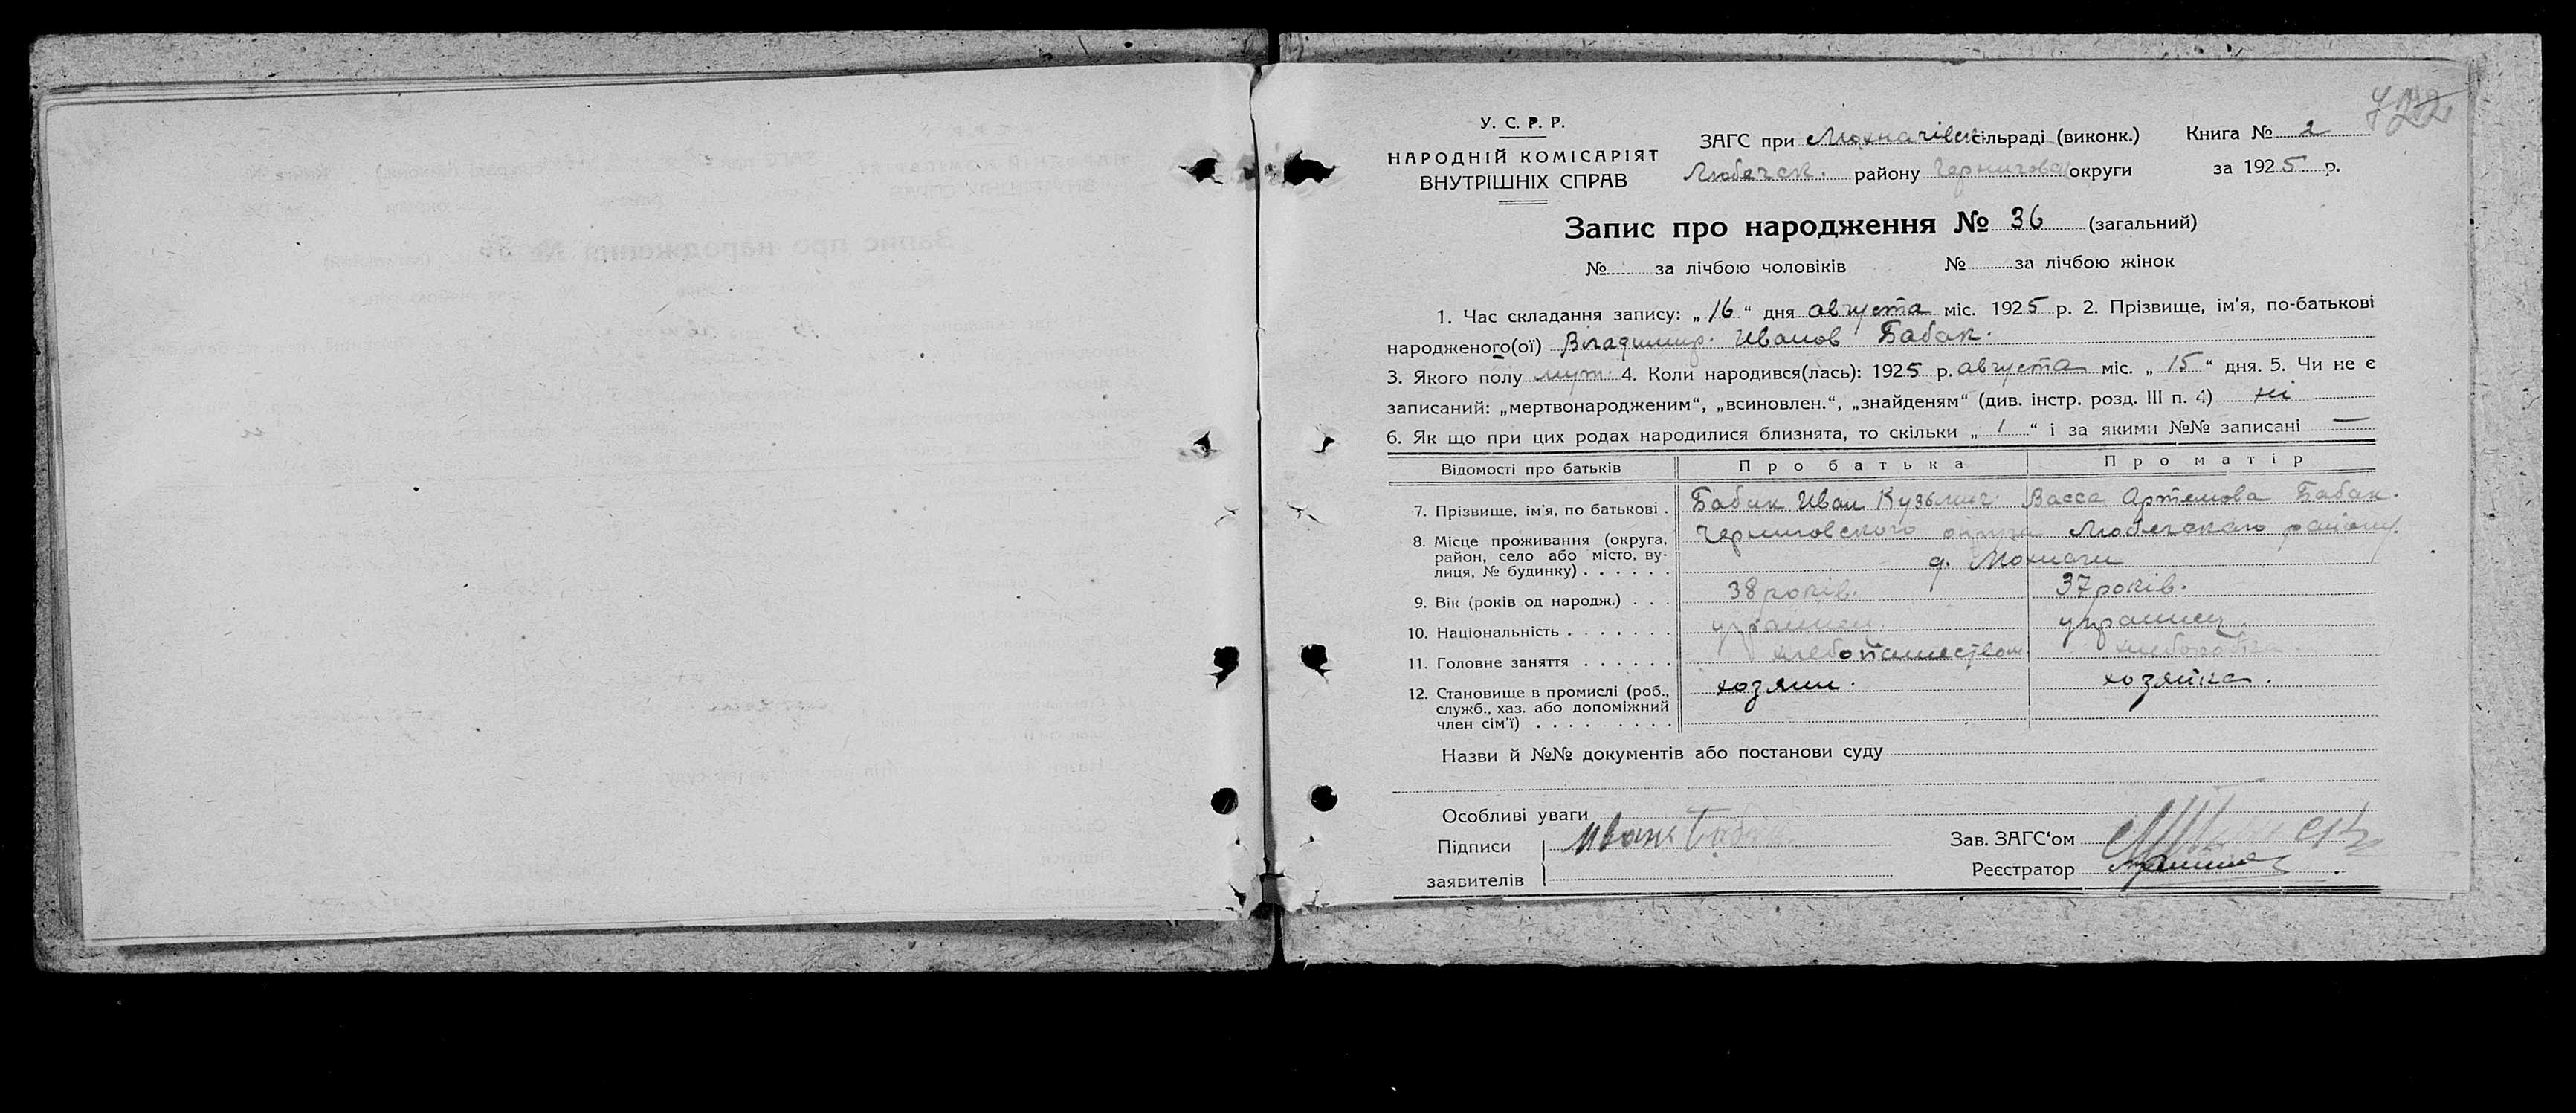 722
У. С. Р. Р.
НАРОДНІЙ КОМІСАРІЯТ
ВНУТРІШНІХ СПРАВ
ЗАГС при Мохначівск сільраді (виконк.) Книга № 2
Любечск. району Черниговск округи за 1925 р.
Запис про народження № 36 (загальний)
№ за лічбою чоловіків № за лічбою жінок
1. Час складання запису: „16“ дня августа міс. 1925 р. 2. Прізвище, ім'я, по-батькові
народженого(ої) Владимир. Иванов Бабак.
3. Якого полу муж. 4. Коли народився(лась): 1925 р. августа міс. „15“ дня. 5. Чи не є
записаний: „мертвонародженим“, „всиновлен.“, „знайденям“ (див. інстр. розд. III п. 4) ні
6. Як що при цих родах народилися близнята, то скільки „1“ і за якими №№ записані —
Відомості про батьків Про батька Про матір
7. Прізвище, ім'я, по батькові . Бабак Иван Кузьмич. Васса Артемова Бабак.
8. Місце проживання (округа, Черниговского округа Любечскаго району.
район, село або місто, ву-
лиця, № будинку) . . . . . . д. Мохначи
9. Вік (років од народж.) . . . 38 років. 37 років.
10. Національність . . . . . . . украинец. украинец.
11. Головне заняття . . . . . . хлебопашеством
12. Становище в промислі (роб., хозяин. хозяйка.
служб., хаз. або допоміжний
член сім'ї) . . . . . . . .
Назви й №№ документів або постанови суду
Особливі уваги
Підписи Иван Бабак
заявителів
Зав. ЗАГС'ом
Реєстратор